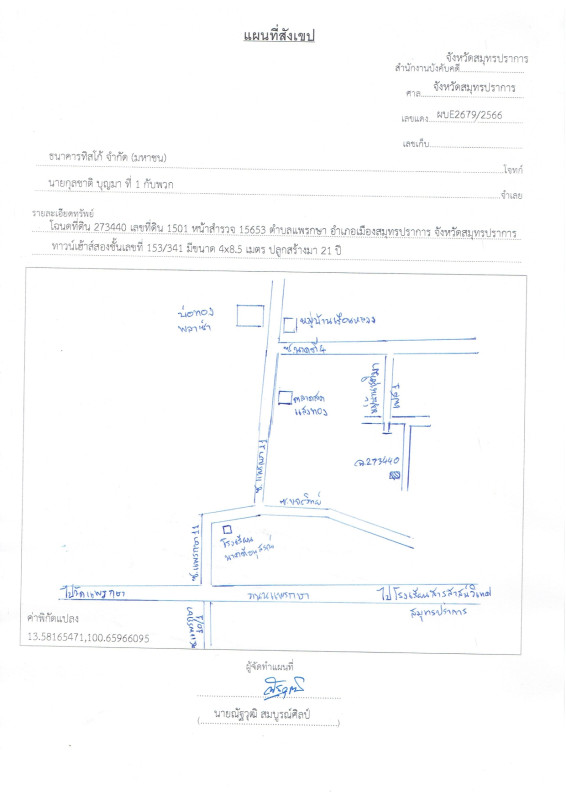 แผนที่สังเขป
จังหวัดสมุทรปราการ
สำนักงานบังคับคดี
ศาล จังหวัดสมุทรปราการ
เลขแดง ผบE2679/2566
เลขเก็บ
ธนาคารทิสโก้ จำกัด (มหาชน) โจทก์
นายกุลชาติ บุญมา ที่ 1 กับพวก จำเลย
รายละเอียดทรัพย์
โฉนดที่ดิน 273440 เลขที่ดิน 1501 หน้าสำรวจ 15653 ตำบลแพรกษา อำเภอเมืองสมุทรปราการ จังหวัดสมุทรปราการ
ทาวน์เฮ้าส์สองชั้นเลขที่ 153/341 มีขนาด 4x8.5 เมตร ปลูกสร้างมา 21 ปี
บ่อทอง
พลาซ่า
หมู่บ้านเรือนหลวง
ตลาดสด
แสงทอง
ฉ.273440
โรงเรียน
ไปวัดแพรกษา
ถนนแพรกษา
ไปโรงเรียนสารสาสน์วิเทศ
สมุทรปราการ
ค่าพิกัดแปลง
13.58165471,100.65966095
ผู้จัดทำแผนที่
นายณัฐวุฒิ สมบูรณ์ศิลป์